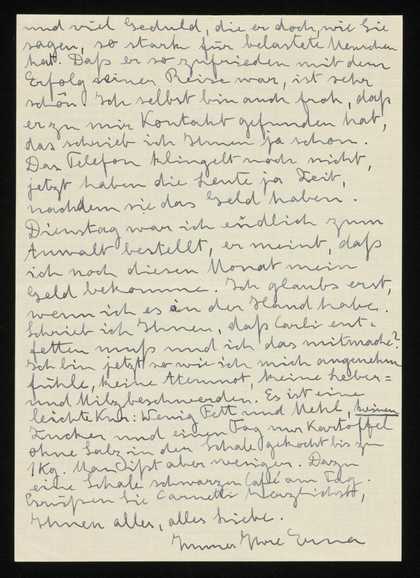 und viel Geduld, die er doch, wie Sie
sagen, so stark für belastete Menschen
hat. Daß er so zufrieden mit dem
Erfolg seiner Reise war, ist sehr
schön. Ich selbst bin auch froh, daß
er zu mir Kontakt gefunden hat,
das schrieb ich Ihnen ja schon.
Das Telefon klingelt noch nicht,
jetzt haben die Leute ja Zeit,
nachdem sie das Geld haben.
Dienstag war ich endlich zum
Anwalt bestellt, er meint, daß
ich noch diesen Monat mein
Geld bekomme. Ich glaubs erst,
wenn ich es in der Hand habe.
Schrieb ich Ihnen, daß Carli ent-
fetten muß und ich das mitmache?
Ich bin jetzt so wie ich mich angenehm
fühle, keine Atemnot, keine Leber=
und Milzbeschwerden. Es ist eine
leichte Kur: Wenig Fett und Mehl, keinen
Zucker und einen Tag nur Kartoffel
ohne Salz in der Schale gekocht bis zu
1 Kg. Man ißt aber weniger. Dazu
eine Schale schwarzen Café am Tag.
Grüßen Sie herzlichst,
Ihnen alles, alles Liebe.
Immer Ihre Erna